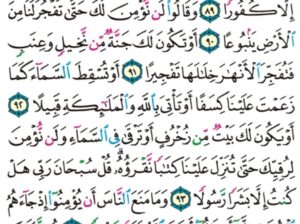 إِلَّا كُفُورًا ٨٩ وَقَالُوا۟ لَن نُّؤْمِنَ لَكَ حَتَّىٰ تَفْجُرَ لَنَا مِنَ
ٱلْأَرْضِ يَنۢبُوعًا ٩٠ أَوْ تَكُونَ لَكَ جَنَّةٌ مِّن نَّخِيلٍ وَعِنَبٍ
فَتُفَجِّرَ ٱلْأَنْهَٰرَ خِلَٰلَهَا تَفْجِيرًا ٩١ أَوْ تُسْقِطَ ٱلسَّمَآءَ كَمَا
زَعَمْتَ عَلَيْنَا كِسَفًا أَوْ تَأْتِىَ بِٱللَّهِ وَٱلْمَلَٰٓئِكَةِ قَبِيلًا ٩٢
أَوْ يَكُونَ لَكَ بَيْتٌ مِّن زُخْرُفٍ أَوْ تَرْقَىٰ فِى ٱلسَّمَآءِ وَلَن نُّؤْمِنَ
لِرُقِيِّكَ حَتَّىٰ تُنَزِّلَ عَلَيْنَا كِتَٰبًا نَّقْرَؤُهُۥ ۗ قُلْ سُبْحَانَ رَبِّى هَلْ
كُنتُ إِلَّا بَشَرًا رَّسُولًا ٩٣ وَمَا مَنَعَ ٱلنَّاسَ أَن يُؤْمِنُوٓا۟ إِذْ جَآءَهُمُ